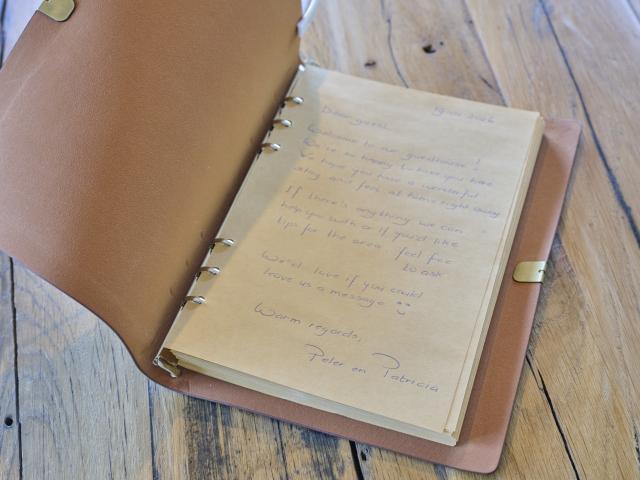 Dear guest,
Welcome to our guesthouse!
We're so happy to have you here
We hope you have a wonderful
stay and feel at home right away
If there's anything we can
help you with or if you'd like
tips for the area feel free
to ask
We'd love if you could
leave us a message :)
Warm regards,
Peter en Patricia